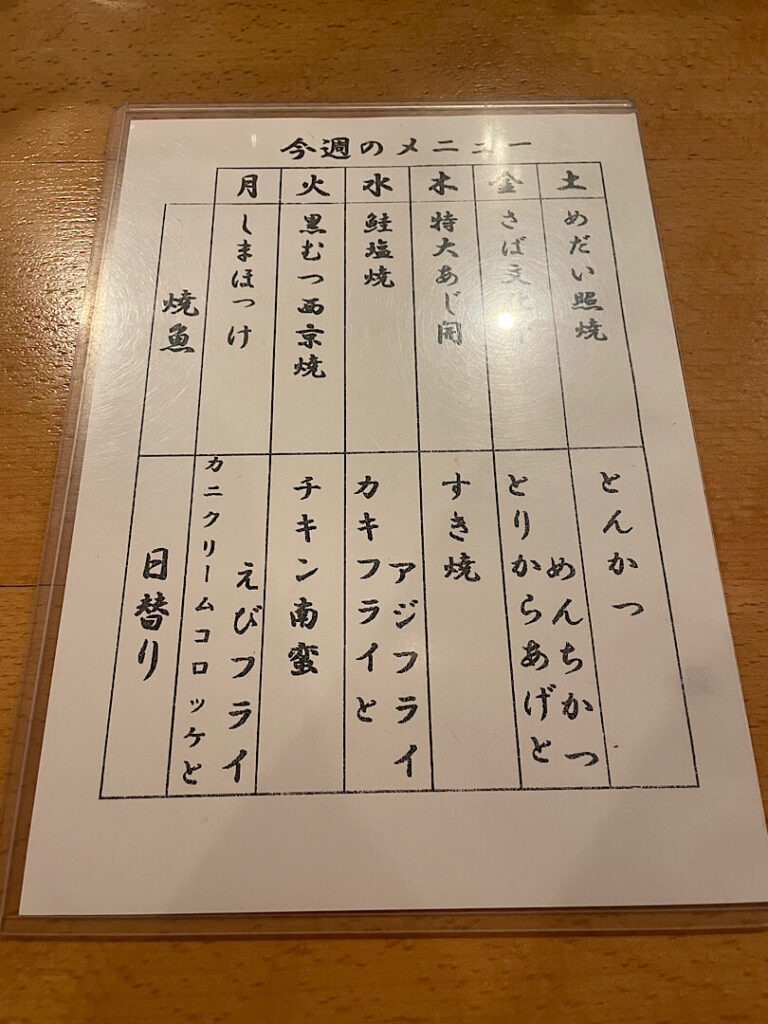 今週のメニュー
月 火 水 木 金 土
焼魚
しまほっけ
黒むつ西京焼
鮭塩焼
特大あじ開
さば文
めだい照焼
日替り
カニクリームコロッケと
えびフライ
チキン南蛮
カキフライと
アジフライ
すき焼
とりからあげと
めんちかつ
とんかつ